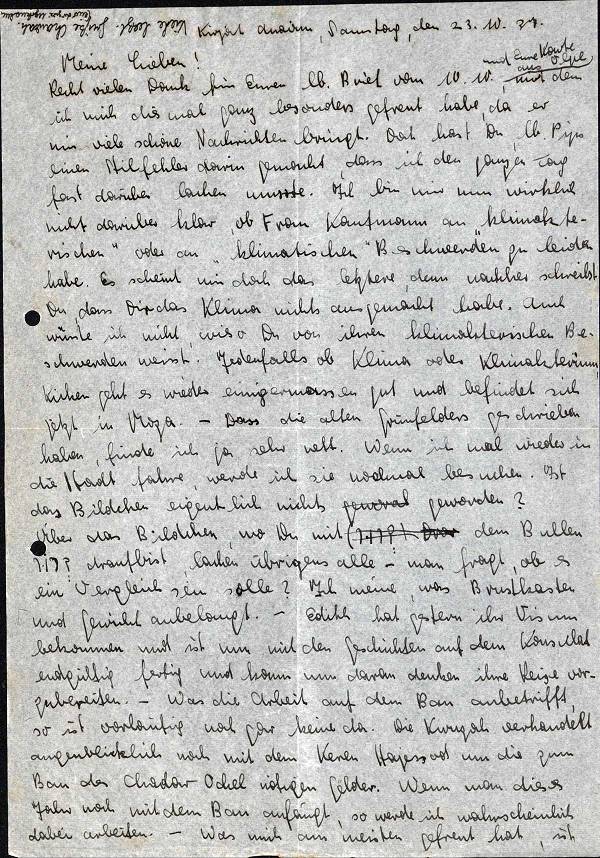 Viele herzl. Grüße Chawah
Kirjat Anavim, Samstag, den 23.10.37.
Meine Lieben!
und Eure Karte
Recht vielen Dank für Euren lb. Brief vom 10.10., mit dem
ich mich diesmal ganz besonders gefreut habe, da er
nur viele schöne Nachrichten bringt. Doch hast Du, lb.
einen Stilfehler darin gemacht, dass ich den ganzen Tag
fast darüber lachen musste. Ich bin mir nun wirklich
nicht darüber klar, ob Frau Kaufmann an "klimakte-
rischen" oder an "klimatischen" Beschwerden zu leiden
habe. Es scheint mir doch das letztere, denn nachher schreibst
Du dass Dir das Klima nichts ausgemacht habe. Auch
wüsste ich nicht, wieso Du von ihren klimakterischen Be-
schwerden weisst. Jedenfalls ob Klima oder Klimakterium,
geht es wieder einigermassen gut und befindet sich
jetzt in Moza. – Dass die alten Grünfelders geschrieben
haben, finde ich ja sehr nett. Wenn ich mal wieder in
die Stadt fahre, werde ich sie nochmal besuchen. Ist
das Bildchen eigentlich nichts geworden?
Über das Bildchen, wo Du mit dem Bullen
drauf bist lachen übrigens alle – man fragt, ob es
ein Vergleich sein solle? Ich meine, was Brustkasten
und Gewicht anbelangt. – Edith hat gestern ihr Visum
bekommen und ist nun mit den Geschichten auf dem Konsulat
endgültig fertig und kann nun daran denken ihre Reise vor-
zubereiten. – Was die Arbeit auf dem Bau anbetrifft,
so ist vorläufig noch gar keine da. Die Kwuzah verhandelt
augenblicklich noch mit dem Keren Hajessod um die zum
Bau des Chadar Ochel nötigen Gelder. Wenn man dieses
Jahr noch mit dem Bau anfängt, so werde ich wahrscheinlich
dabei arbeiten. – Was mich am meisten gefreut hat, ist